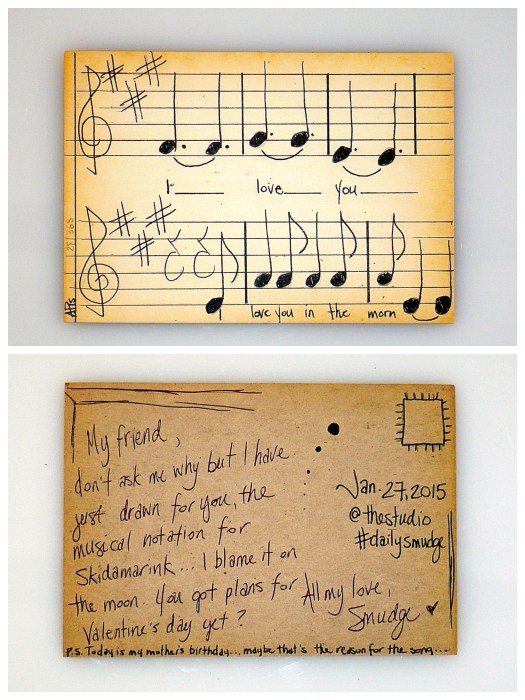 I love you
27/365
APis
I love you in the morn
My friend,
don't ask me why but I have
just drawn for you, the
musical notation for
Skidamarink... I blame it on
the moon. You got plans for
Valentine's day yet?
Jan. 27, 2015
@thestudio
#dailysmudge
All my love,
Smudge
P.S. Today is my mother's birthday... maybe that's the reason for the song...